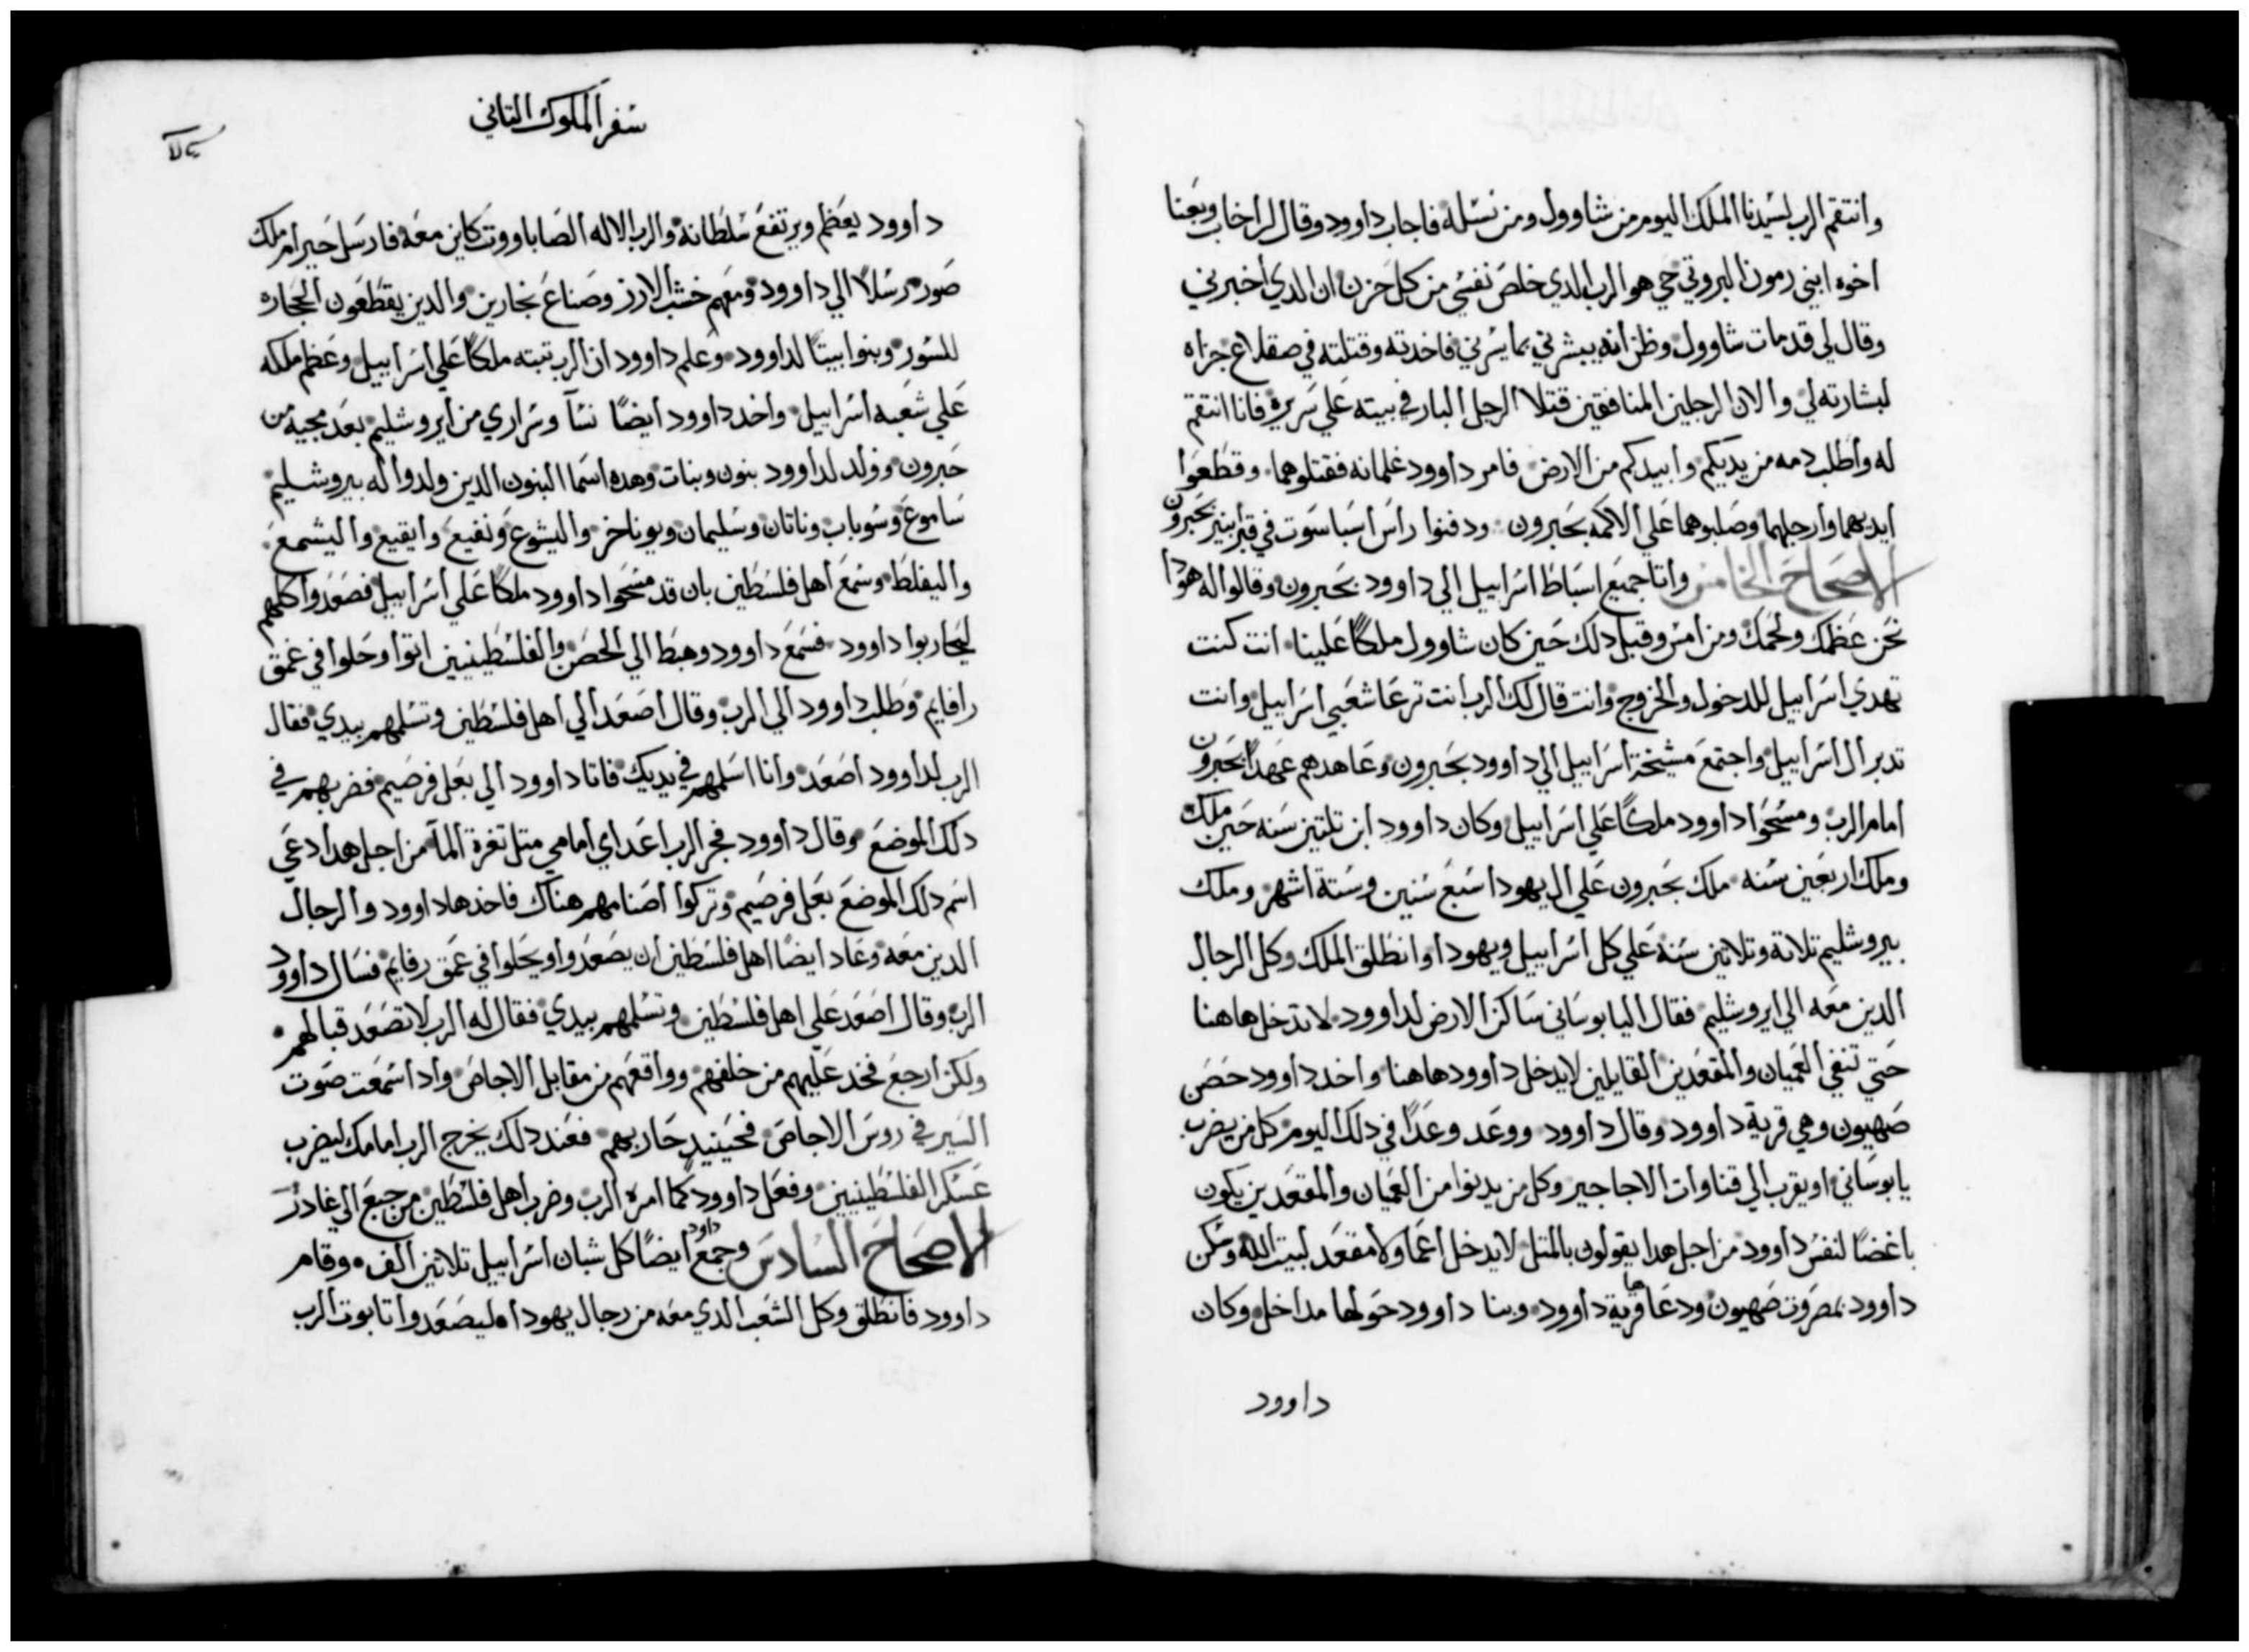 وانتقم الرب لسيدنا الملك اليوم من شاوول ومن نسله فاجاب داوود وقال لراخاب وبعنا
اخوه ابني رمون البروتي حي هو الرب الدي خلص نفسي من كل حزن ان الدي اخبرني
وقال لي قد مات شاوول وظن انه يبشرني بما يسرني فاخدته وقتلته في صقلاع جزاه
لبشارته لي والان الرجلين المنافقين قتلا الرجل البار في بيته علي سريره فانا انتقم
له واطلب دمه من يديكم وابيدكم من الارض فامر داوود غلمانه فقتلوهما وقطعوا
ايديهما وارجلهما وصلبوهما علي الاكمه بحبرون ودفنوا راس اسباسوت في قبر ابنير بحبرون
الاصحاح الخامس واتا جميع اسباط اسراييل الي داوود بحبرون وقالوا له هودا
نحن عظمك ولحمك ومن امس وقبل دلك حين كان شاوول ملكا علينا انت كنت
تهدي اسراييل للدخول والخروج وانت قال لك الرب انت ترعا شعبي اسراييل وانت
تدبر ال اسراييل واجتمع مشيخة اسراييل الي داوود بحبرون وعاهدهم عهدا بحبرون
امام الرب ومسحوا داوود ملكا علي اسراييل وكان داوود ابن تلتين سنه حين ملك
وملك اربعين سنه ملك بحبرون علي ال يهودا سبع سنين وستة اشهر وملك
بيروشليم تلاتة وتلاتين سنة علي كل اسراييل ويهودا وانطلق الملك وكل الرجال
الدين معه الي ايروشليم فقال اليابوساني ساكن الارض لداوود لا تدخل هاهنا
حتي تنفي العميان والمقعدين القايلين لا يدخل داوود هاهنا واخد داوود حصن
صهيون وهي قرية داوود وقال داوود ووعد وعدا في دلك اليوم كل من يضرب
يابوساني او يقرب الي قناوات الاجاجير وكل من يدنوا من العميان والمقعدين يكون
باغضا لنفس داوود من اجل هدا يقولون بالمتل لا يدخل اعما ولا مقعد لبيت الله وسكن
داوود بمصروت صهيون ودعاها قرية داوود وبنا داوود حولها مداخل وكان
داوود
سفر الملوك التاني
داوود يعظم ويرتفع سلطانه والرب الاله الصاباووت كاين معه فارسل حيرام ملك
صور رسلا الي داوود ومعهم خشب الارز وصناع نجارين والدين يقطعون الحجاره
للسور وبنوا بيتا لداوود وعلم داوود ان الرب تبته ملكا علي اسراييل وعظم ملكه
علي شعبه اسراييل واخد داوود ايضا نسآ وسراري من ايروشليم بعد مجيه من
حبرون وولد لداوود بنون وبنات وهده اسما البنون الدين ولدوا له بيروشليم
ساموع وسوباب وناتان وسليمان ويوناخر واليشوع ونفيع وايقيع واليشمع
واليفلط وسمع اهل فلسطين بان قد مسحوا داوود ملكا علي اسراييل فصعدوا كلهم
ليحاربوا داوود فسمع داوود وهبط الي الحصن والفلسطينيين اتوا وحلوا في عمق
رافايم وطلب داوود الي الرب وقال اصعد الي اهل فلسطين وتسلمهم بيدي فقال
الرب لداوود اصعد وانا اسلمهم في يديك فاتا داوود الي بعل فرصيم فضربهم في
دلك الموضع وقال داوود فجر الرب اعداي امامي متل تغرة المآ من اجل هدا دعي
اسم دلك الموضع بعل فرصيم وتركوا اصنامهم هناك فاخدها داوود والرجال
الدين معه وعاد ايضا اهل فلسطين ان يصعدوا ويحلوا في عمق رفايم فسال داوود
الرب وقال اصعد علي اهل فلسطين وتسلمهم بيدي فقال له الرب لا تصعد قبالهم
ولكن ارجع فخد عليهم من خلفهم وواقعهم من مقابل الاجاص وادا سمعت صوت
السير في روس الاجاص فحينيد حاربهم فعند دلك يخرج الرب امامك ليضرب
عسكر الفلسطينيين وفعل داوود كما امره الرب وضرب اهل فلسطين من جبع الي غادر
الاصحاح السادس وجمع داود ايضا كل شبان اسراييل تلاتين الف وقام
داوود فانطلق وكل الشعب الدي معه من رجال يهودا ليصعدوا تابوت الرب